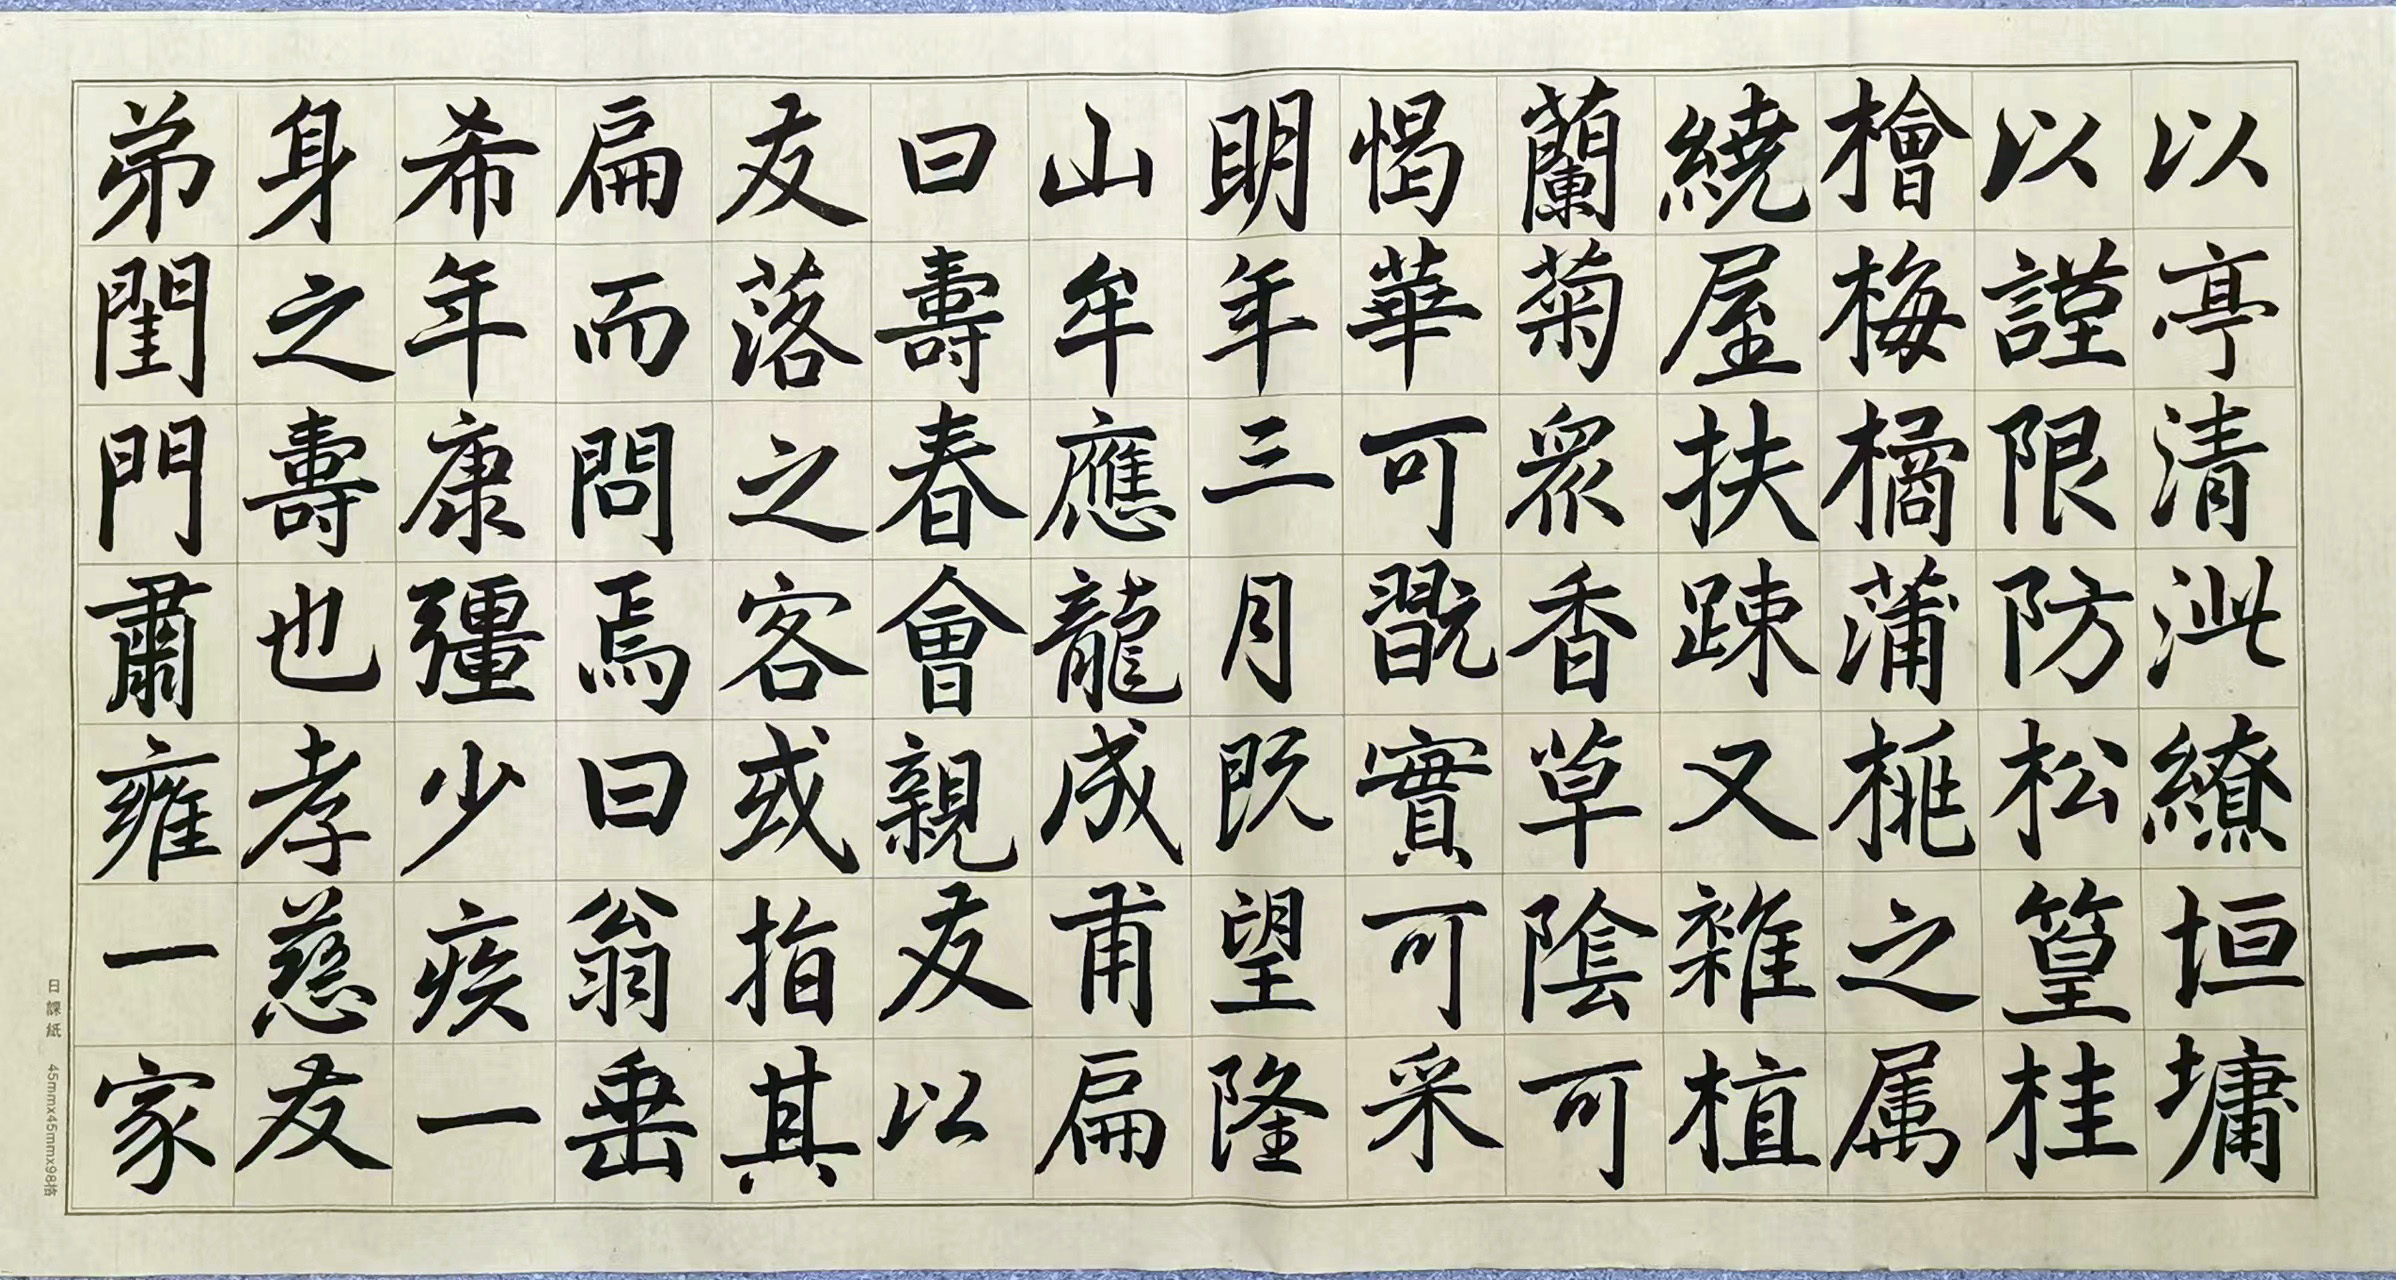 以亭清泚繚垣墉
以謹限防松篁桂
檜梅橘蒲桃之属
繞屋扶踈又雜植
蘭菊眾香草陰可
愒華可翫實可采
明年三月既望隆
山牟應龍成甫扁
曰壽春會親友以
友落之客或指其
扁而問焉曰翁垂
希年康彊少疾一
身之壽也孝慈友
弟閨門肅雍一家
日課紙 45mmx45mmx98格